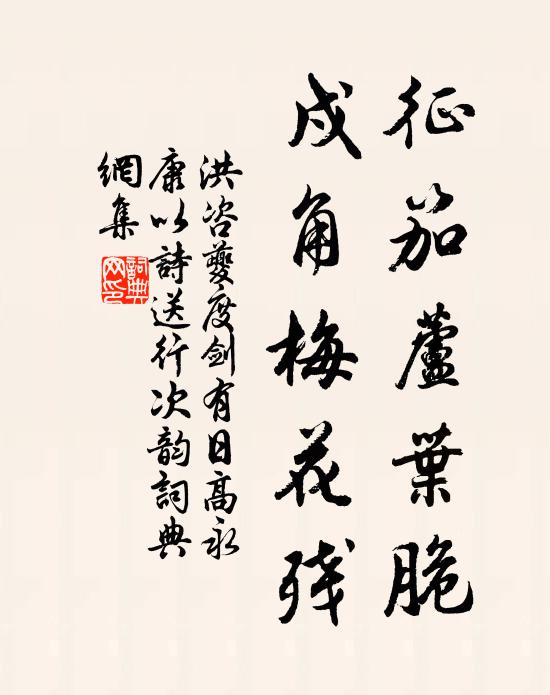 征笳蘆葉脆
戍角梅花殘
洪咨夔度劍有日高永
康以詩送行次韵詞典
網集
詞典
网印